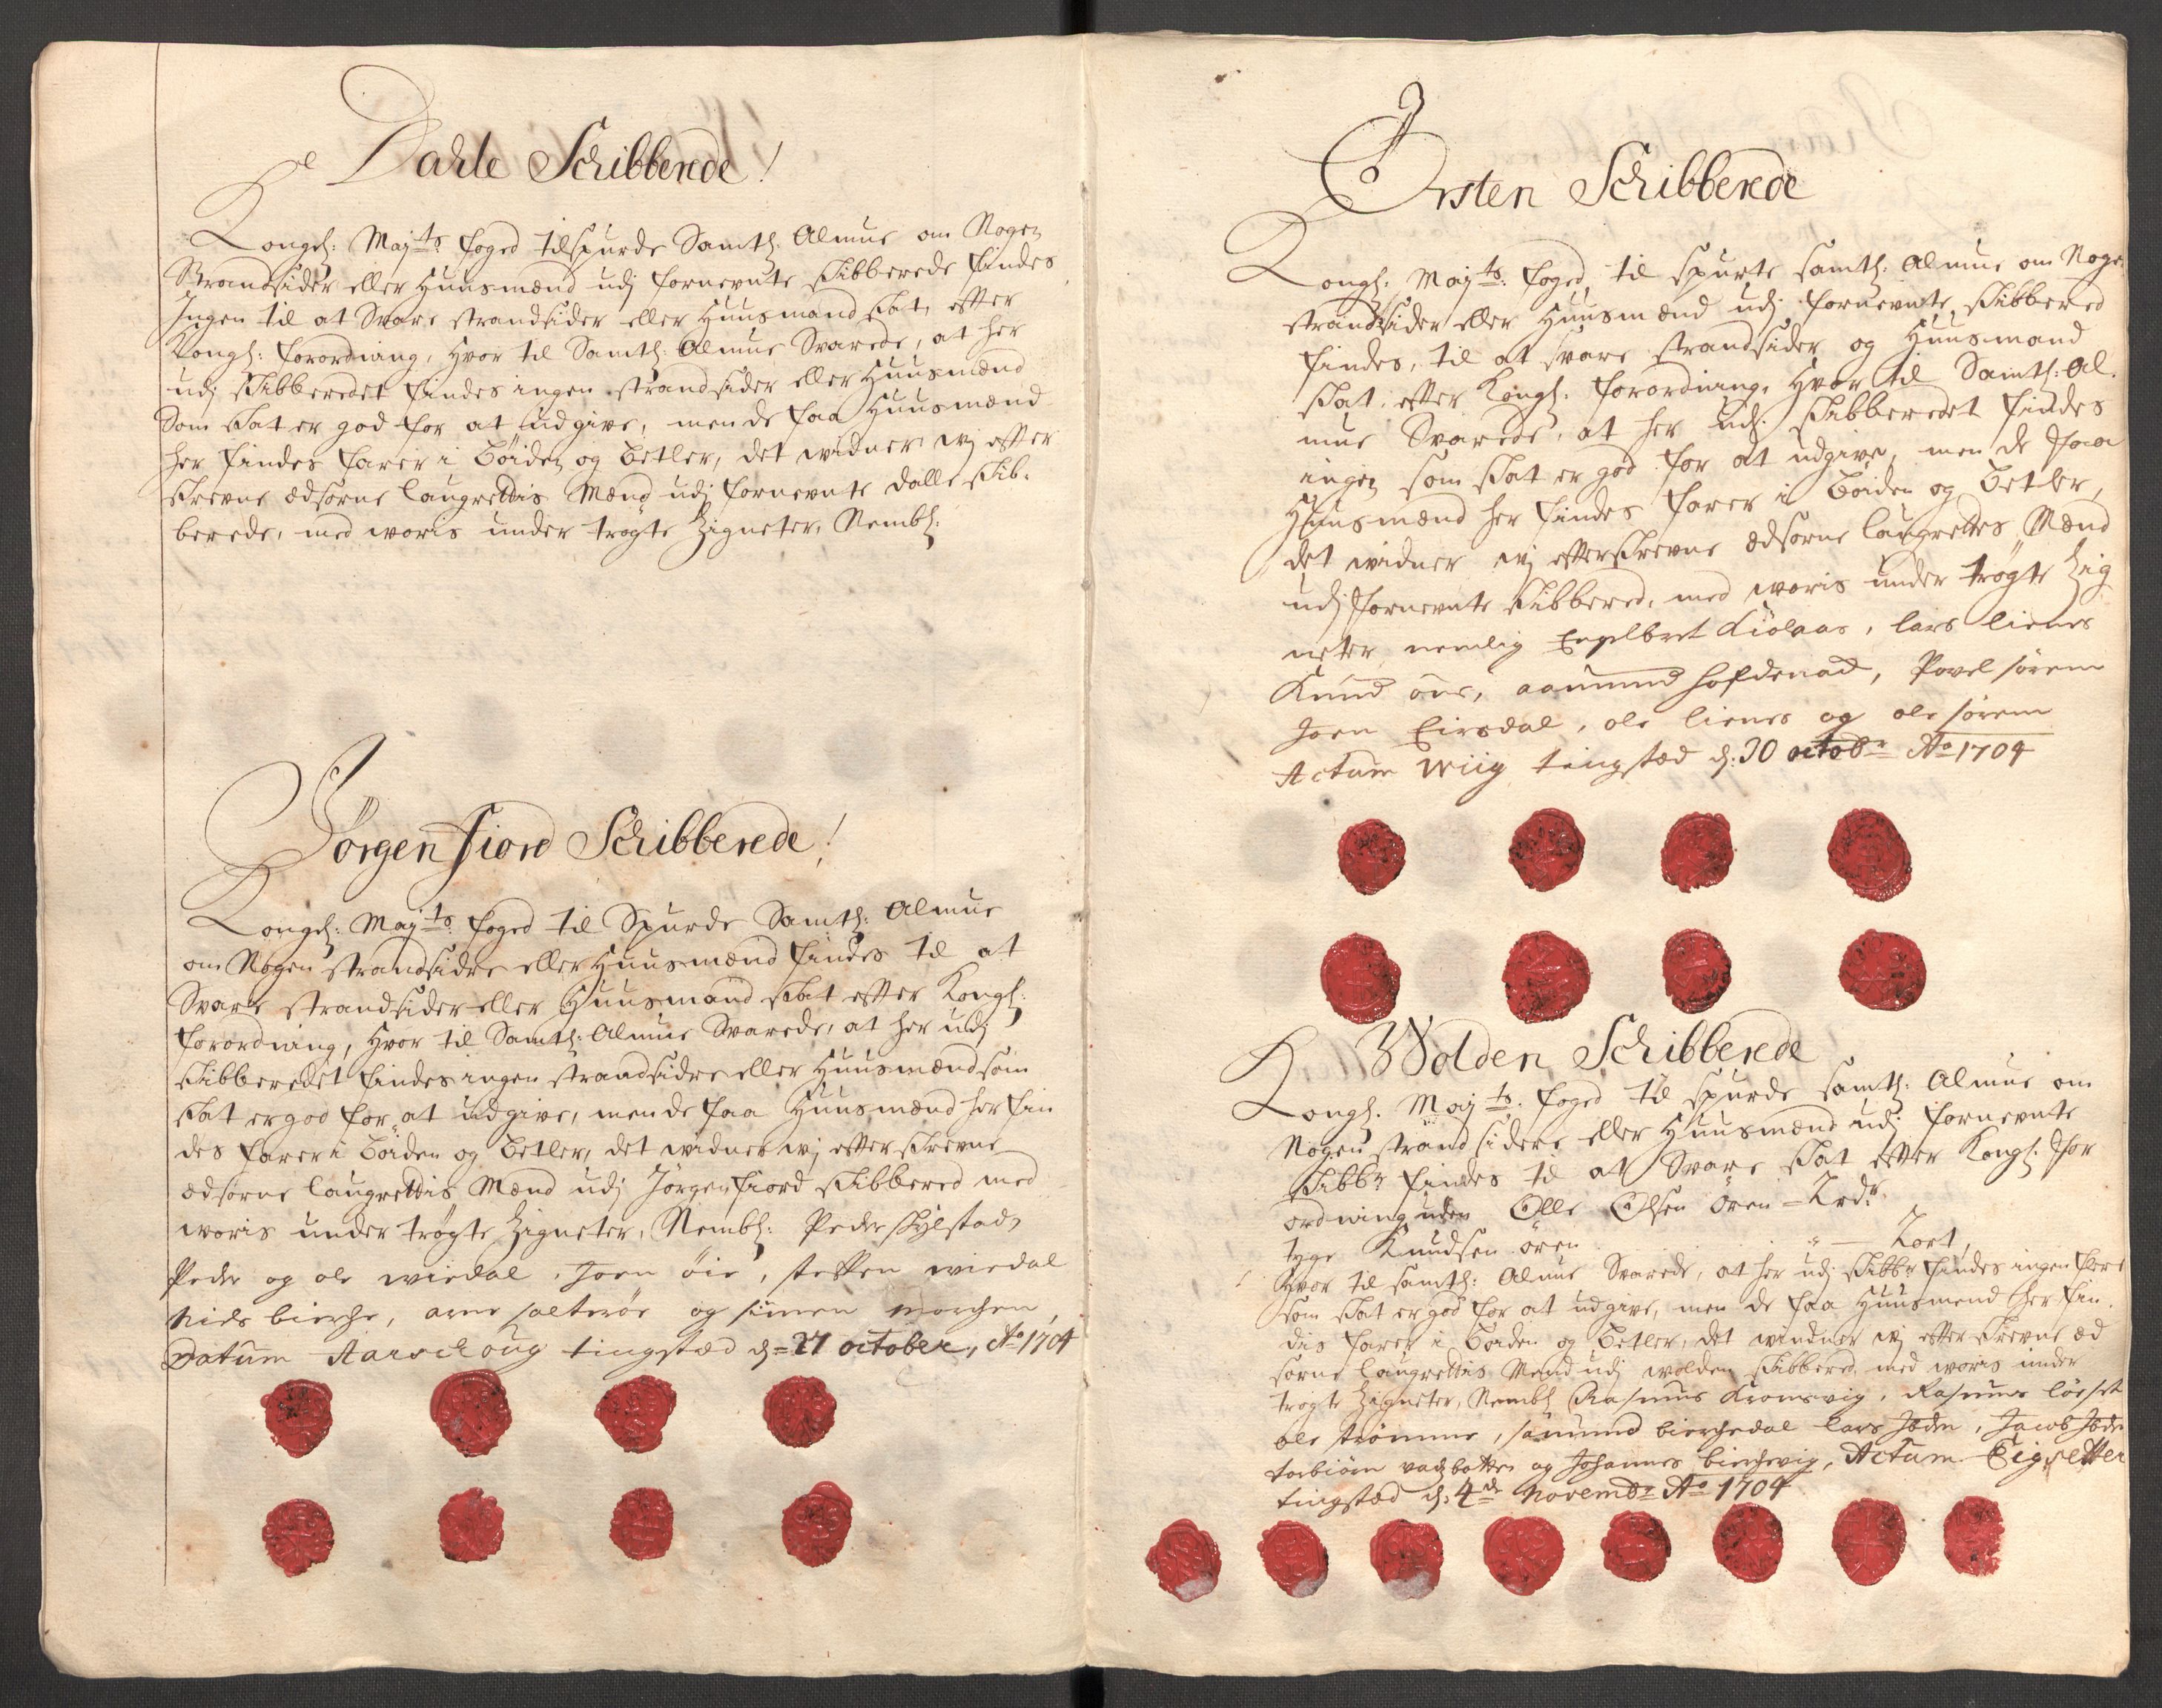 Dahle Schibberede!
Kongel: Maj<sup>ts</sup> foged tilspurde Samtl: Almue om Nogen
Strandsider eller Huusmænd udj fornevnte skibberede findes
Ingen til at Svare strandsider eller Huusmand skat, efter
Kongl: forordning, Hvor til Samtl: Almue Svarede, at her
udj skibberedet findes ingen strandsider eller Huusmænd
Som skat er god for at udgive, men de faa Huusmænd
her findes farer i bøiden og betler, det widner wj efter
skrevne ædsorne laugrettis Mænd udj fornevnte dalle skib-
berede, med woris under trøgte Zigneter, Nembl:
Jørgen fiord Schibberede!
Kongel: Maj<sup>ts</sup> foged til Spurde Samtl: Almue
om Nogen strandsidre eller Huusmænd findes til at
Svare strandsider eller Huusmand skat efter Kongl:
forordning, Hvor til Samtl: Almue Svarede, at her udj
skibberedet findes ingen strandsidre eller Huusmænd som
skat er god for at udgive, men de faa Huusmænd her fin
des farer i bøiden og betler, det widner wj efter skrevne
ædsorne laugrettis Mænd udj Jørgenfiord skibbered med
woris under trøgte Zigneter, Nembl: Peder skylstad,
Peder og ole wiedal, Joen øie, steffen wiedal
Niels bierche, arne salterøe og simen morchen,
Datum Aarschoug tingstæd d= 27 october, A<sup>o</sup> 1704
Ørsten Schibberede
Kongl: Maj<sup>ts</sup>: foged til spurte samtl: Almue om Nogen
strandsider eller Huusmænd udj fornevnte skibbered
findes, til at svare strandsider og Huusmand
skat, efter Kongl: forordning, Hvor til Samtl: Al-
mue Svarede, at her udj skibberedet findes
ingen som skat er god for at udgive, men de faa
Huusmænd her findes farer i bøiden og betler,
det widner wj efterskrevne ædsorne laugrettes Mænd
udj fornevnte skibbered, med woris under trøgte Zig
neter, nemlig Engelbret Kiølaas, lars lienes
Knud øue, aamund hofdenad, Povel sørem
Joen Eirsdal, ole lienes og ole sørem
Actum Wiig tingstæd d: 30 octob<sup>r</sup> A<sup>o</sup> 1704
Wolden Schibberede
Kongl: Maj<sup>ts</sup>: foged til spurde samtl: Almue om
Nogen strandsidere eller Huusmænd udj fornevnte
skibb<sup>r</sup> findes til at Svare skat efter Kongl: for
ordning uden Olle Olsen øren
tyge Knudsen øren
Hvor til samtl: Almue Svarede, at her udj skibb<sup>r</sup> findes ingen flere
som skat er god for at udgive, men de faa Huusmend her fin-
dis farer i bøiden og betler, det windner wj efter skrevne æd
sorne laugrettis Mend udj wolden skibbered med woris under
trøgte Zigneter, Nembl Rasmus Kromsvig, Rasmus løeset
ole strømme, samund bierchedal lars Høden, Jacob Høden
torbiørn vatzbotten og Johannes birchevig, Actum Eigsetter
tingstæd d: 4<sup>de</sup> Novemb<sup>r</sup> A<sup>o</sup> 1704